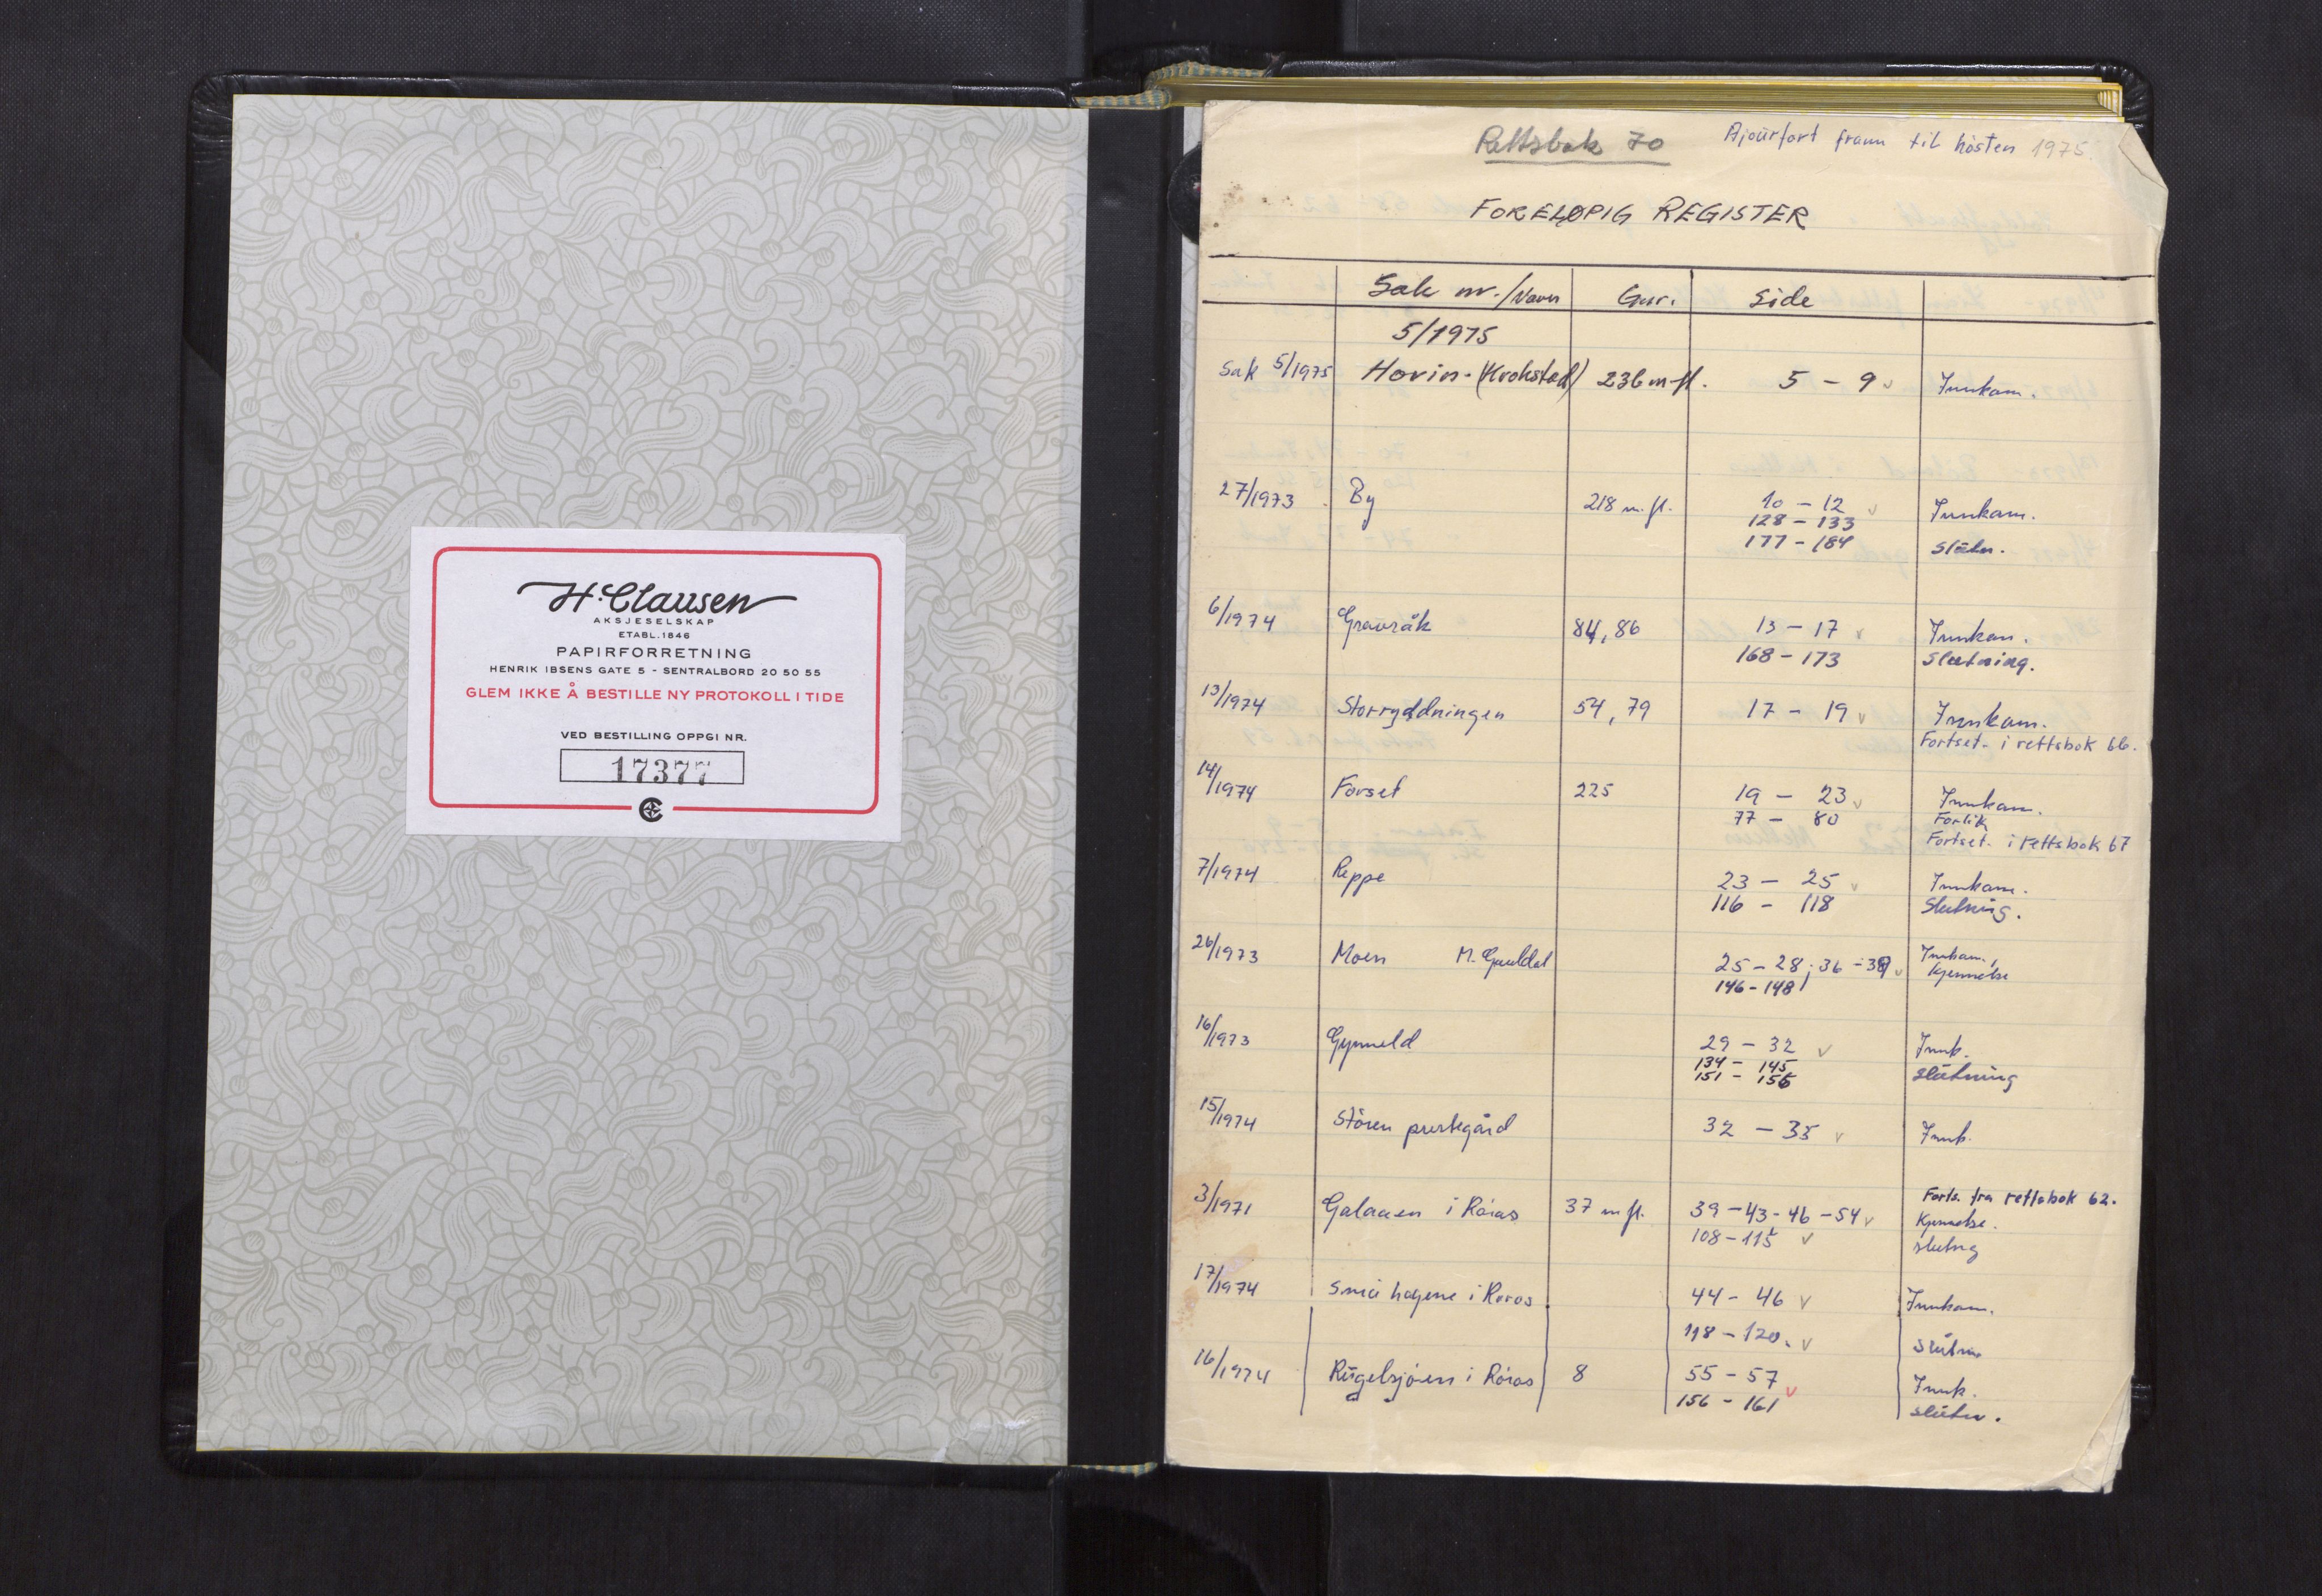 H. Clausen
AKSJESELSKAP
ETABL. 1846
PAPIRFORRETNING
HENRIK IBSENS GATE 5 - SENTRALBORD 20 50 55
GLEM IKKE Å BESTILLE NY PROTOKOLL I TIDE
VED BESTILLING OPPGI NR.
17377
Rettsbok 70 Ajourført fram til høsten 1975.
FORELØPIG REGISTER
Sak nr./Navn Gnr. Side
5/1975
Sak 5/1975 Hovin - (Krokstad) 236 m fl. 5 - 9 Innkam.
27/1973 By 218 m. fl. 10 - 12 Innkam.
128 - 133
177 - 184 Slutn.
6/1974 Gravråk 84, 86 13 - 17 Innkam.
168 - 173 Slutning.
13/1974 Storryddningen 54, 79 17 - 19 Innkam.
Fortset. i rettsbok 66.
14/1974 Forset 225 19 - 23 Innkam.
77 - 80 Forlik
Fortset. i rettsbok 67
7/1974 Reppe 23 - 25 Innkam.
116 - 118 Slutning.
26/1973 Moen M. Gauldal 25 - 28; 36 - 39 Innkam.,
146 - 148 Kjennelse
16/1973 Gynneld 29 - 32 Innk.
134 - 145 slutning
151 - 156
15/1974 Støren prestegård 32 - 35 Innk.
Forts. fra rettsbok 62.
3/1971 Galaaen i Røros 37 m fl. 39 - 43 - 46 - 54 Kjennelse.
108 - 115 slutng
17/1974 Småhagene i Røros 44 - 46 Innkam.
118 - 120. Slutn
16/1974 Rugelsjøen i Røros 8 55 - 57 Innk.
156 - 161 slutn.